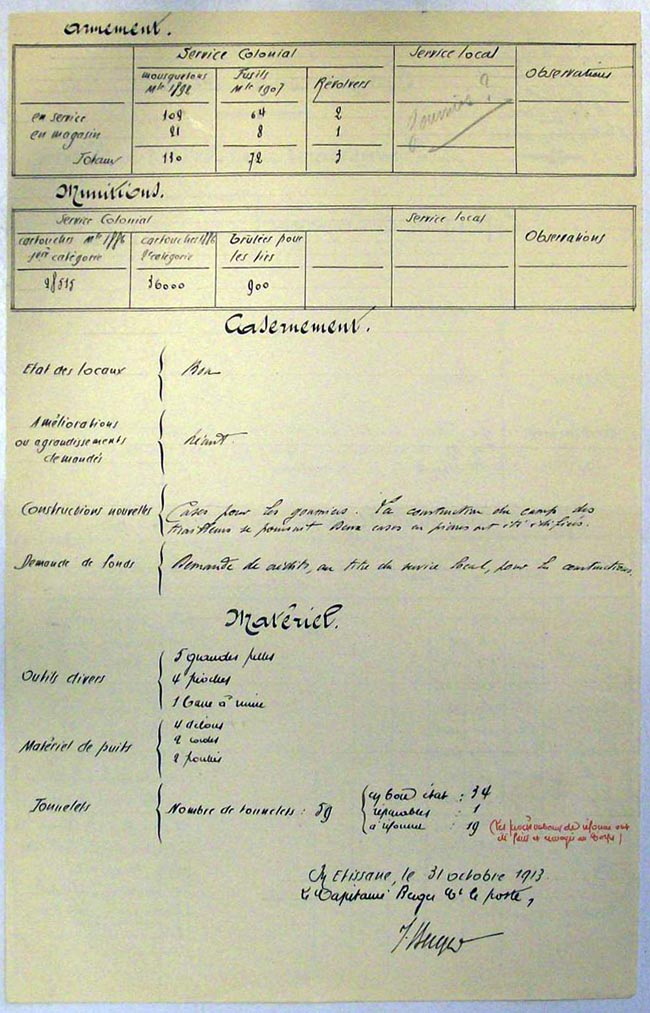 Armement.
Service Colonial
Service local
Observations
mousquetons Mle 1892
Fusils Mle 1907
Révolvers
en service 109 64 2
en magasin 21 8 1
Totaux 130 72 3
Fournier ?
Munitions.
Service Colonial
Service local
Observations
cartouches Mle 1886 1ère catégorie
cartouches 1886 2e catégorie
brûlées pour les tirs
28515 36000 900
Casernement.
Etat des locaux Bon
Améliorations
ou agrandissements
demandés
Néant.
Constructions nouvelles Cases pour les goumiers. La construction du camp des
tirailleurs se poursuit. Deux cases en pierres ont été édifiées.
Demande de fonds Demande de crédits, au titre du service local, pour les constructions.
Matériel.
Outils divers
5 grandes pelles
4 pioches
1 barre à mine
Matériel de puits
4 délous
2 cordes
2 poulies
Tonnelets Nombre de tonnelets : 59
en bon état : 34
réparables : 1
à réformer : 19
(Les procès verbaux de réforme ont
été faits et envoyés au Corps)
Etissane, le 31 octobre 1913
Le Capitaine Berger Ct le poste,
J. Berger